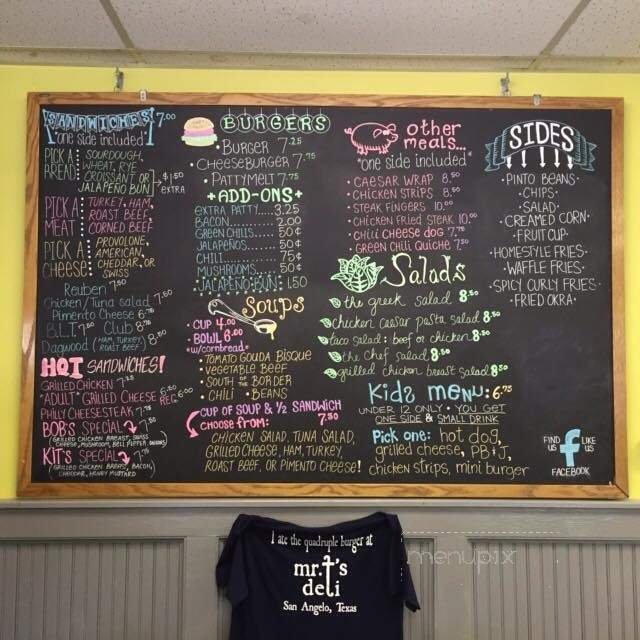 SANDWICHES 7.00
*one side included*
PICK A BREAD: SOURDOUGH, WHEAT, RYE
CROISSANT OR
JALAPEÑO BUN $1.50 EXTRA
PICK A MEAT: TURKEY, HAM,
ROAST BEEF,
CORNED BEEF
PICK A CHEESE: PROVOLONE,
AMERICAN,
CHEDDAR, OR
SWISS
Reuben 7.50
Chicken/Tuna salad 7.50
Pimento Cheese
B.L.T. Club
Dagwood (HAM, TURKEY, ROAST BEEF)
HOT SANDWICHES!
GRILLED CHICKEN
*ADULT* GRILLED CHEESE
PHILLY CHEESESTEAK
BOB'S SPECIAL
(GRILLED CHICKEN BREAST, SWISS
CHEESE, MUSHROOM, BELL PEPPER, ONIONS)
KIT'S SPECIAL
(GRILLED CHICKEN BREAST, BACON,
CHEDDAR, HONEY MUSTARD)
BURGERS
• BURGER 7.25
• CHEESEBURGER 7.75
• PATTY MELT 7.75
+ADD-ONS+
EXTRA PATTY.... 3.25
BACON.......... 2.00
GREEN CHILIS..... 50¢
JALAPEÑOS....... 50¢
CHILI........ 75¢
MUSHROOMS..... 50¢
•JALAPEÑO BUN: 1.50
Soups
• CUP 4.00
• BOWL 6.00
*w/cornbread*
• TOMATO GOUDA BISQUE
• VEGETABLE BEEF
• SOUTH OF THE BORDER
• CHILI • BEANS
CUP OF SOUP & ½ SANDWICH
CHOOSE FROM: 7.50
CHICKEN SALAD, TUNA SALAD,
GRILLED CHEESE, HAM, TURKEY,
ROAST BEEF, OR PIMENTO CHEESE!
other
meals...
*one side included*
• CAESAR WRAP 8.50
• CHICKEN STRIPS 8.50
• STEAK FINGERS 10.00
• CHICKEN FRIED STEAK 10.00
• CHILI CHEESE DOG 7.75
• GREEN CHILI QUICHE 7.50
Salads
the greek salad 8.50
chicken caesar pasta salad 8.50
taco salad: beef or chicken 8.50
the chef salad 8.50
grilled chicken breast salad 8.50
Kids menu: 6.75
UNDER 12 ONLY • YOU GET
ONE SIDE & SMALL DRINK
Pick one: hot dog,
grilled cheese, PB&J,
chicken strips, mini burger
SIDES
•PINTO BEANS•
•CHIPS•
•SALAD•
•CREAMED CORN•
•FRUIT CUP•
•HOMESTYLE FRIES•
•WAFFLE FRIES•
•SPICY CURLY FRIES•
•FRIED OKRA•
FIND US f LIKE US
FACEBOOK
I ate the quadruple burger at
mr. t's
deli
San Angelo, Texas
menupix